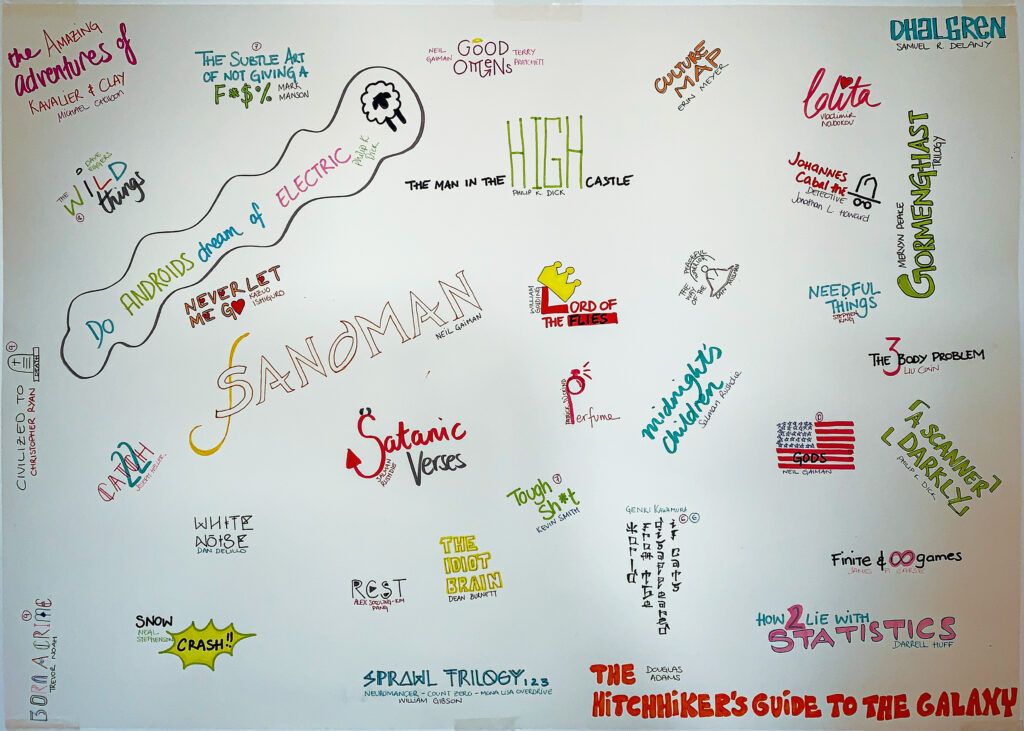 the AMAZING
adventures of
KAVALIER & CLAY
MICHAEL CHABON
THE SUBTLE ART
OF NOT GIVING A
F*$%
MARK
MANSON
NEIL
GAIMAN
GOOD
OMENS
TERRY
PRATCHETT
CULTURE
MAP
ERIN MEYER
DHALGREN
SAMUEL R. DELANY
lolita
Vladimir
Nabokov
DAVE
EGGERS
THE
WILD
things
DO ANDROIDS dream of ELECTRIC
Philip K
Dick
THE MAN IN THE HIGH CASTLE
PHILIP K. DICK
JOHANNES
Cabal the
DETECTIVE
Jonathan L. Howard
MERVYN PEAKE
GORMENGHAST
TRILOGY
NEVER LET
ME GO
KAZUO
ISHIGURO
SANDMAN
NEIL GAIMAN
WILLIAM
GOLDING
LORD OF
THE FLIES
THE
WAY OF THE
PEACEFUL
WARRIOR
DAN MILLMAN
NEEDFUL
THINGS
STEPHEN
KING
THE 3 BODY PROBLEM
LIU CIXIN
CIVILIZED TO
DEATH
CHRISTOPHER RYAN
CATCH
22
JOSEPH HELLER
Satanic
Verses
SALMAN
RUSHDIE
Perfume
midnight's
children
Salman Rushdie
GODS
NEIL GAIMAN
A SCANNER
DARKLY
PHILIP K. DICK
Tough
Sh*t
KEVIN SMITH
WHITE
NOISE
DAN DELILLO
THE
IDIOT
BRAIN
DEAN BURNETT
REST
GENKI KAWAMURA
if cats
disappeared
from the
world
Finite & ∞ games
JAMES P. CARSE
BORN A CRIME
TREVOR NOAH
SNOW
NEAL
STEPHENSON
CRASH!!
HOW 2 LIE WITH
STATISTICS
DARRELL HUFF
SPRAWL TRILOGY 1 2 3
NEUROMANCER - COUNT ZERO - MONA LISA OVERDRIVE
WILLIAM GIBSON
THE
DOUGLAS
ADAMS
HITCHHIKER'S GUIDE TO THE GALAXY